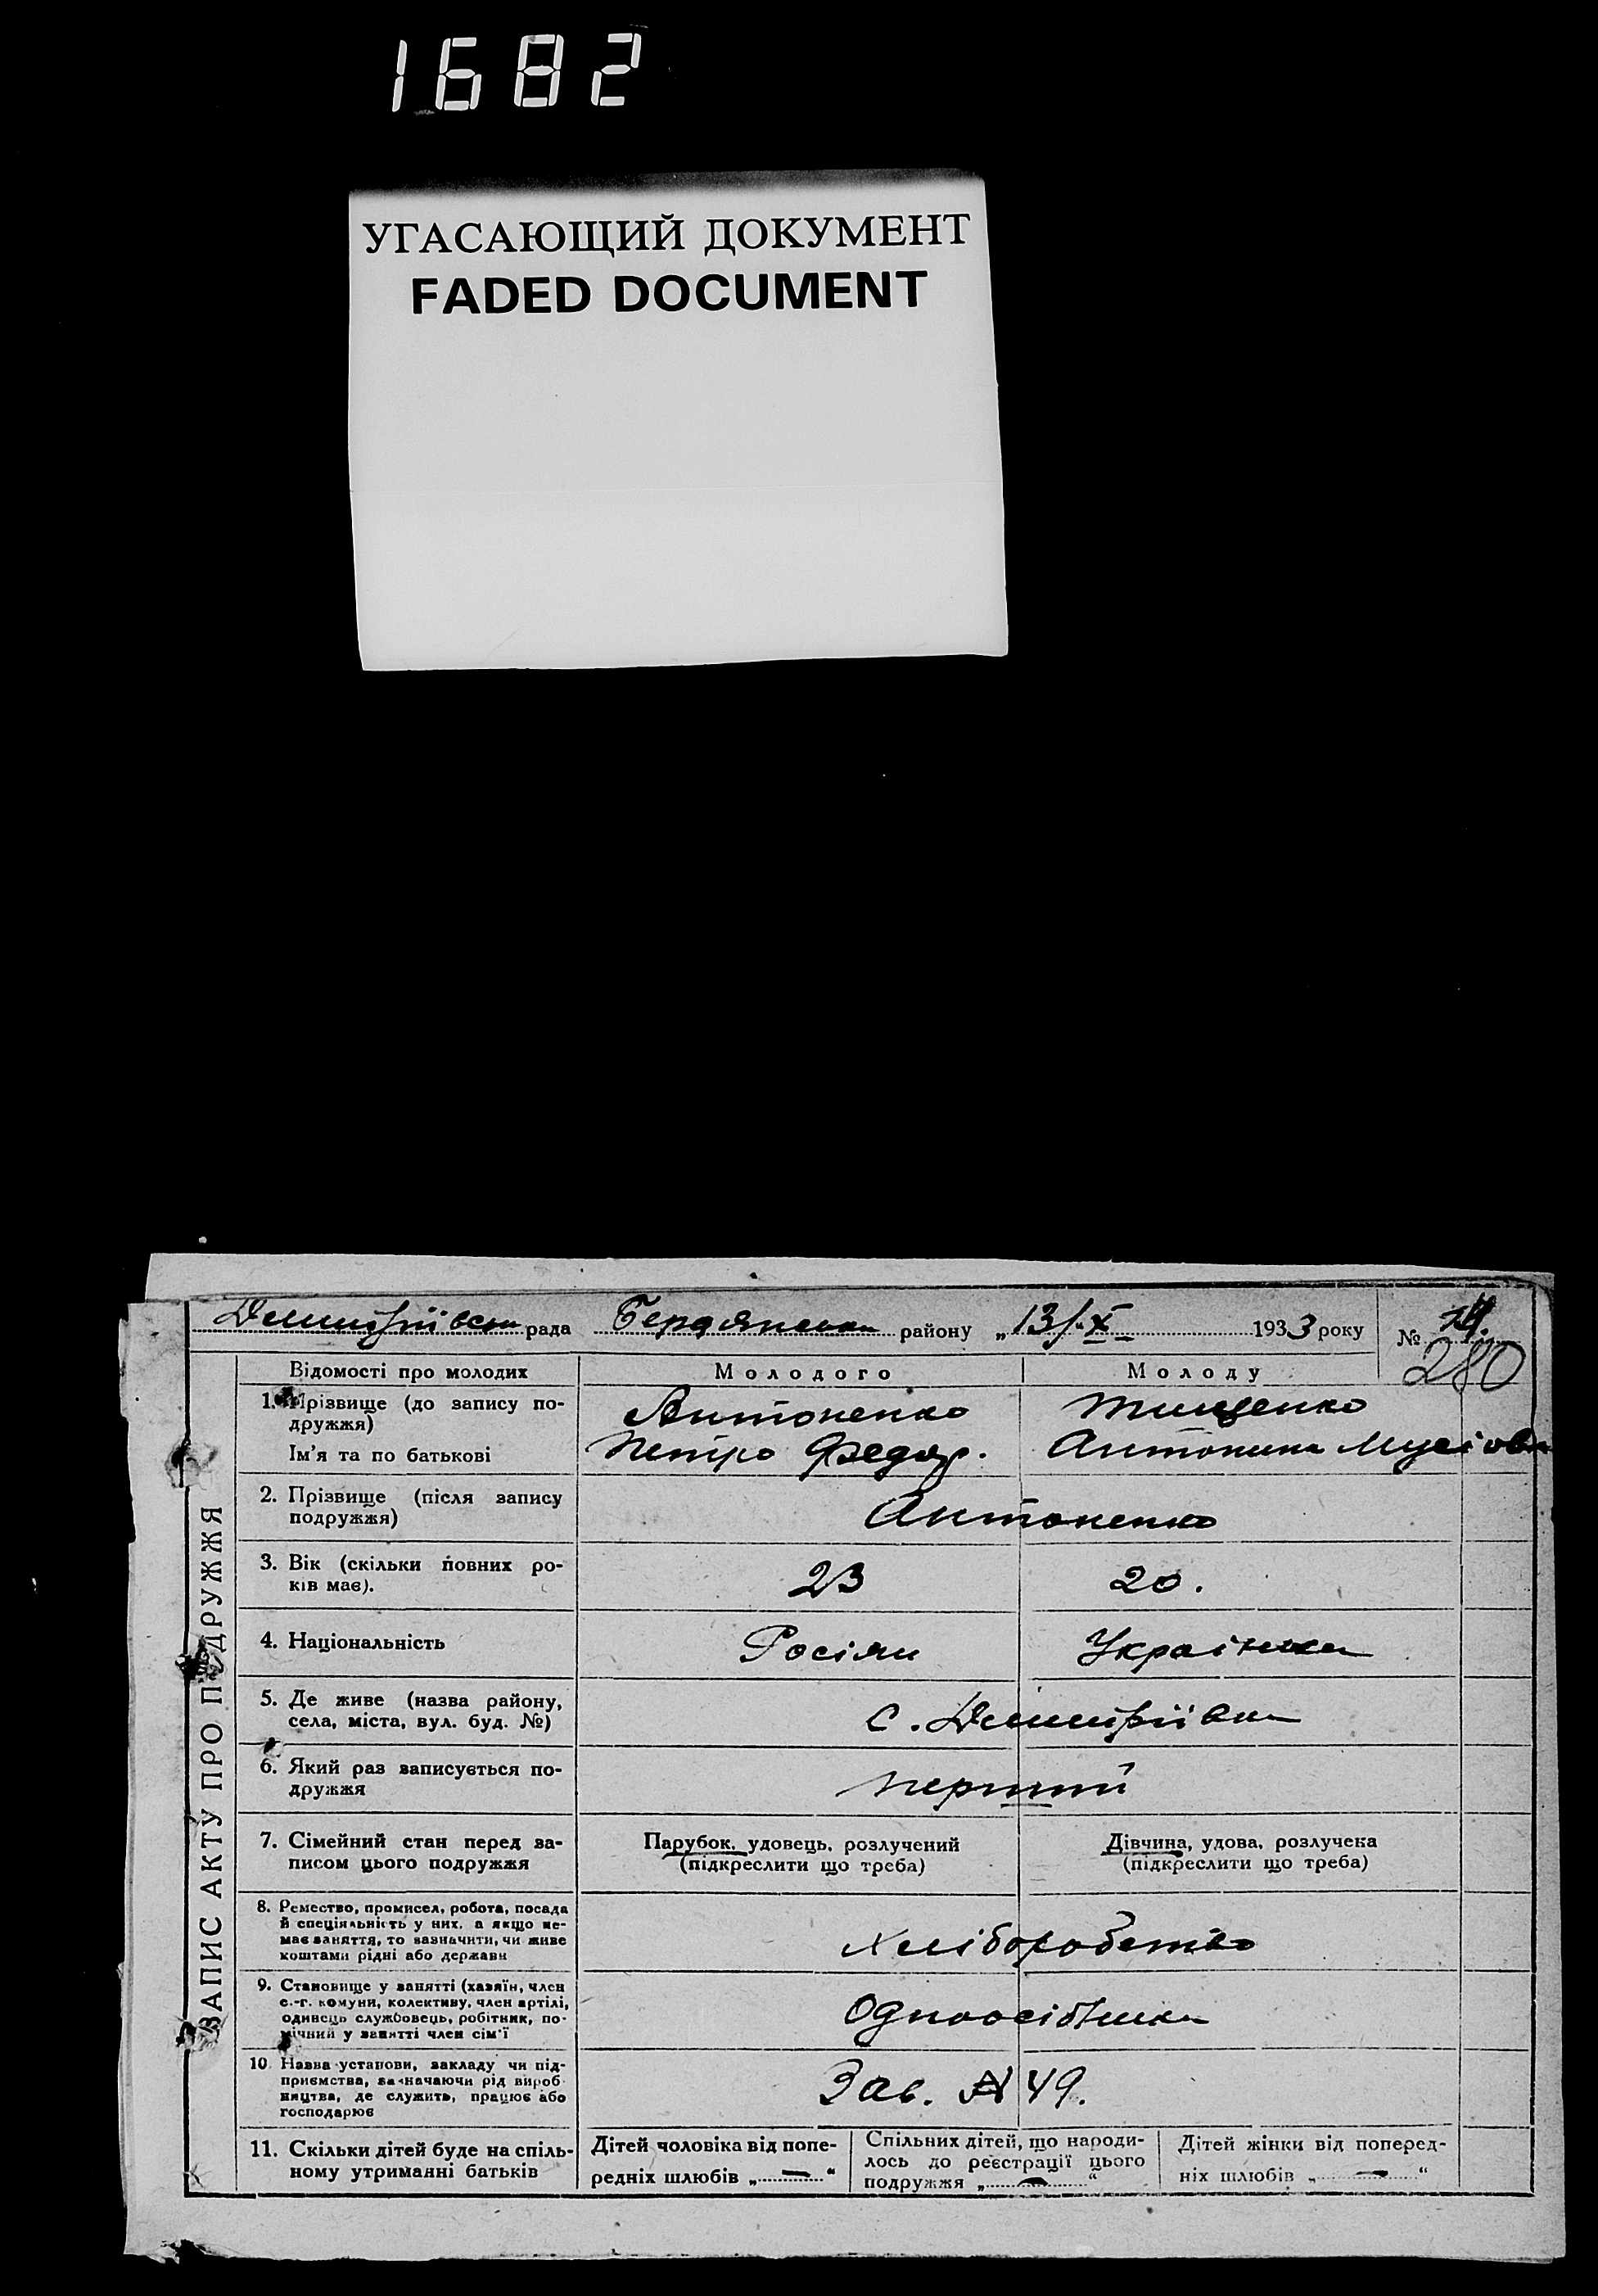 1682
УГАСАЮЩИЙ ДОКУМЕНТ
FADED DOCUMENT
Дмитріївська рада Бердянська району „13/-X 1933 року №
280
ЗАПИС АКТУ ПРО ПОДРУЖЖЯ
Відомості про молодих Молодого Молоду
1. Прізвище (до запису по-
дружжя) Антоненко Тищенко
Ім’я та по батькові Петро Федор. Антонина Мусіовн
2. Прізвище (після запису
подружжя) Антоненко
3. Вік (скільки повних ро-
ків має). 23 20.
4. Національність Росіян Українка
5. Де живе (назва району,
села, міста, вул. буд. №) с. Дмитріївка
6. Який раз записується по-
дружжя перший
7. Сімейний стан перед за-
писом цього подружжя
Парубок, удовець, розлучений
(підкреслити що треба)
Дівчина, удова, розлучена
(підкреслити що треба)
8. Ремество, промисел, робота, посада
й спеціяльність у них, а якщо не-
має заняття, то зазначити, чи живе
коштами рідні або держави
Хліборобство
9. Становище у занятті (хазяїн, член
с.-г. комуни, колективу, член артілі,
одинець службовець, робітник, по-
мічний у занятті член сім’ї
Одноосібника
10 Назва установи, закладу чи під-
приємства, зазначаючи рід вироб
ництва, де служить, працює або
господарює
Зав. № 49.
11. Скільки дітей буде на спіль-
ному утриманні батьків
Дітей чоловіка від попе-
редніх шлюбів „—“
Спільних дітей, що народи-
лось до реєстрації цього
подружжя „—“
Дітей жінки від поперед-
ніх шлюбів „—“